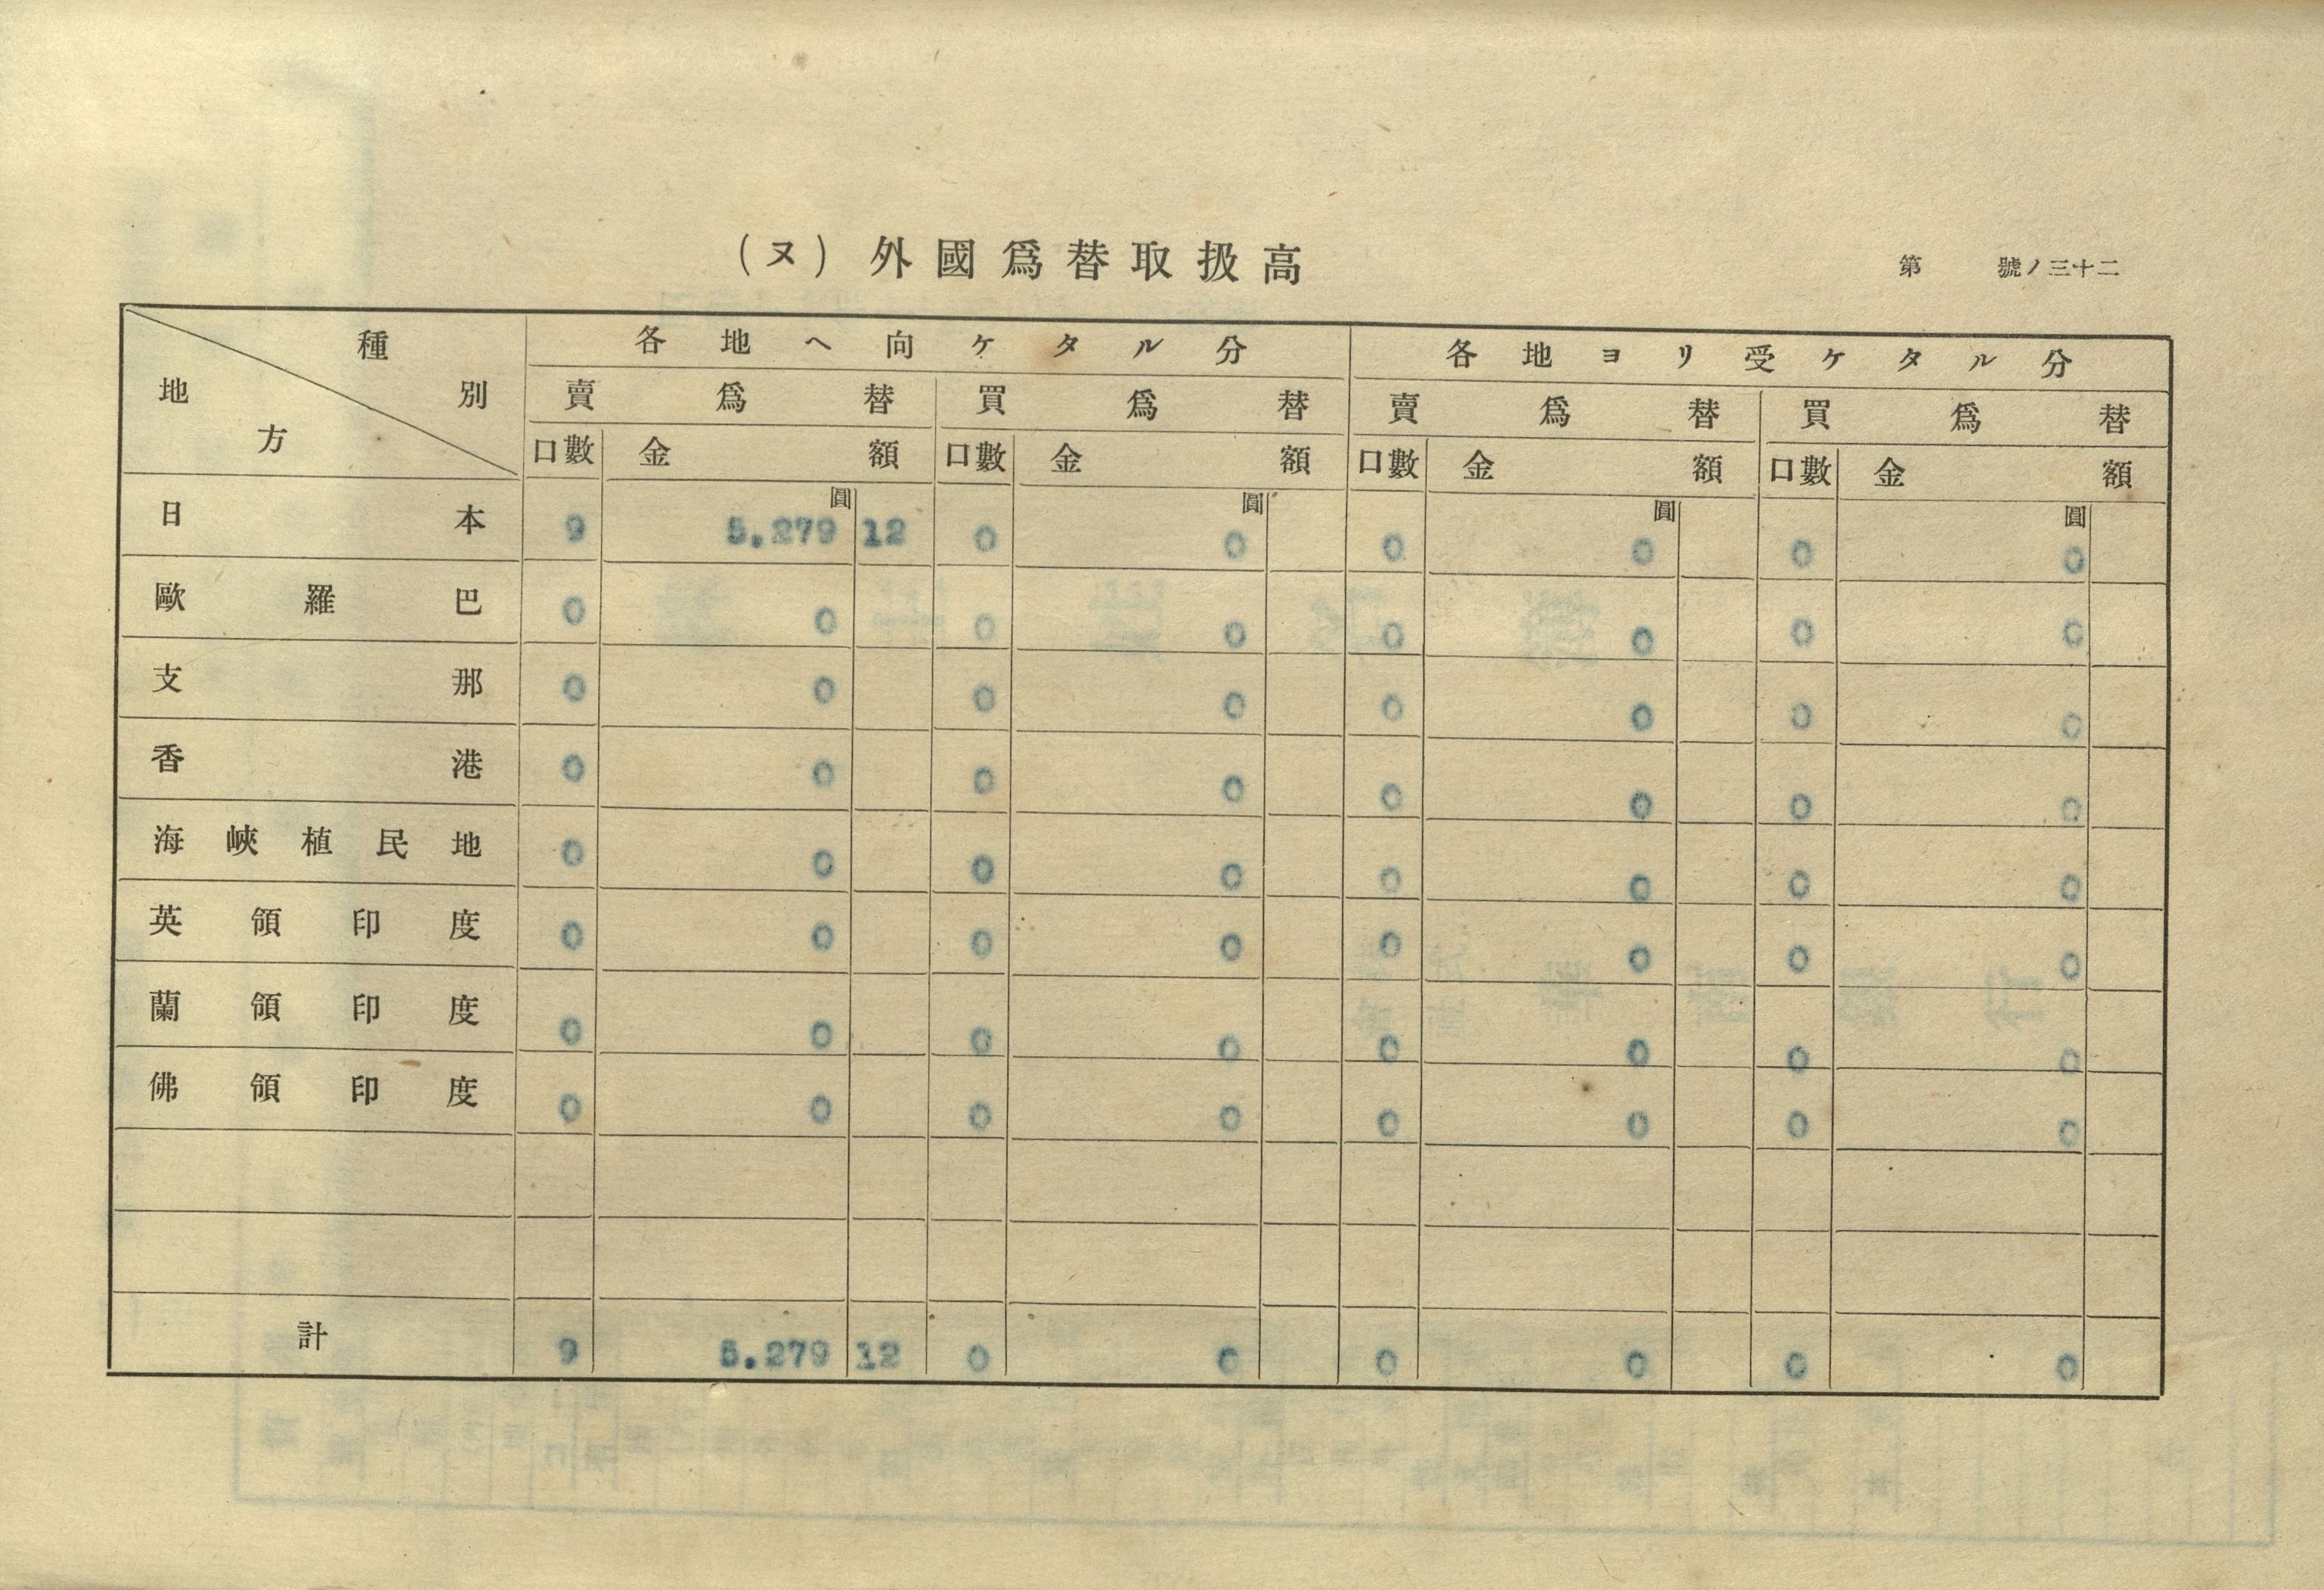 (ヌ) 外國爲替取扱高
第 號ノ三十二
種別 地方
各地ヘ向ケタル分 各地ヨリ受ケタル分
賣爲替 買爲替 賣爲替 買爲替
口數 金額 口數 金額 口數 金額 口數 金額
圓 圓 圓 圓
日本 9 5.279 12 0 0 0 0 0 0
歐羅巴 0 0 0 0 0 0 0 0
支那 0 0 0 0 0 0 0 0
香港 0 0 0 0 0 0 0 0
海峽植民地 0 0 0 0 0 0 0 0
英領印度 0 0 0 0 0 0 0 0
蘭領印度 0 0 0 0 0 0 0 0
佛領印度 0 0 0 0 0 0 0 0
計 9 5.279 12 0 0 0 0 0 0